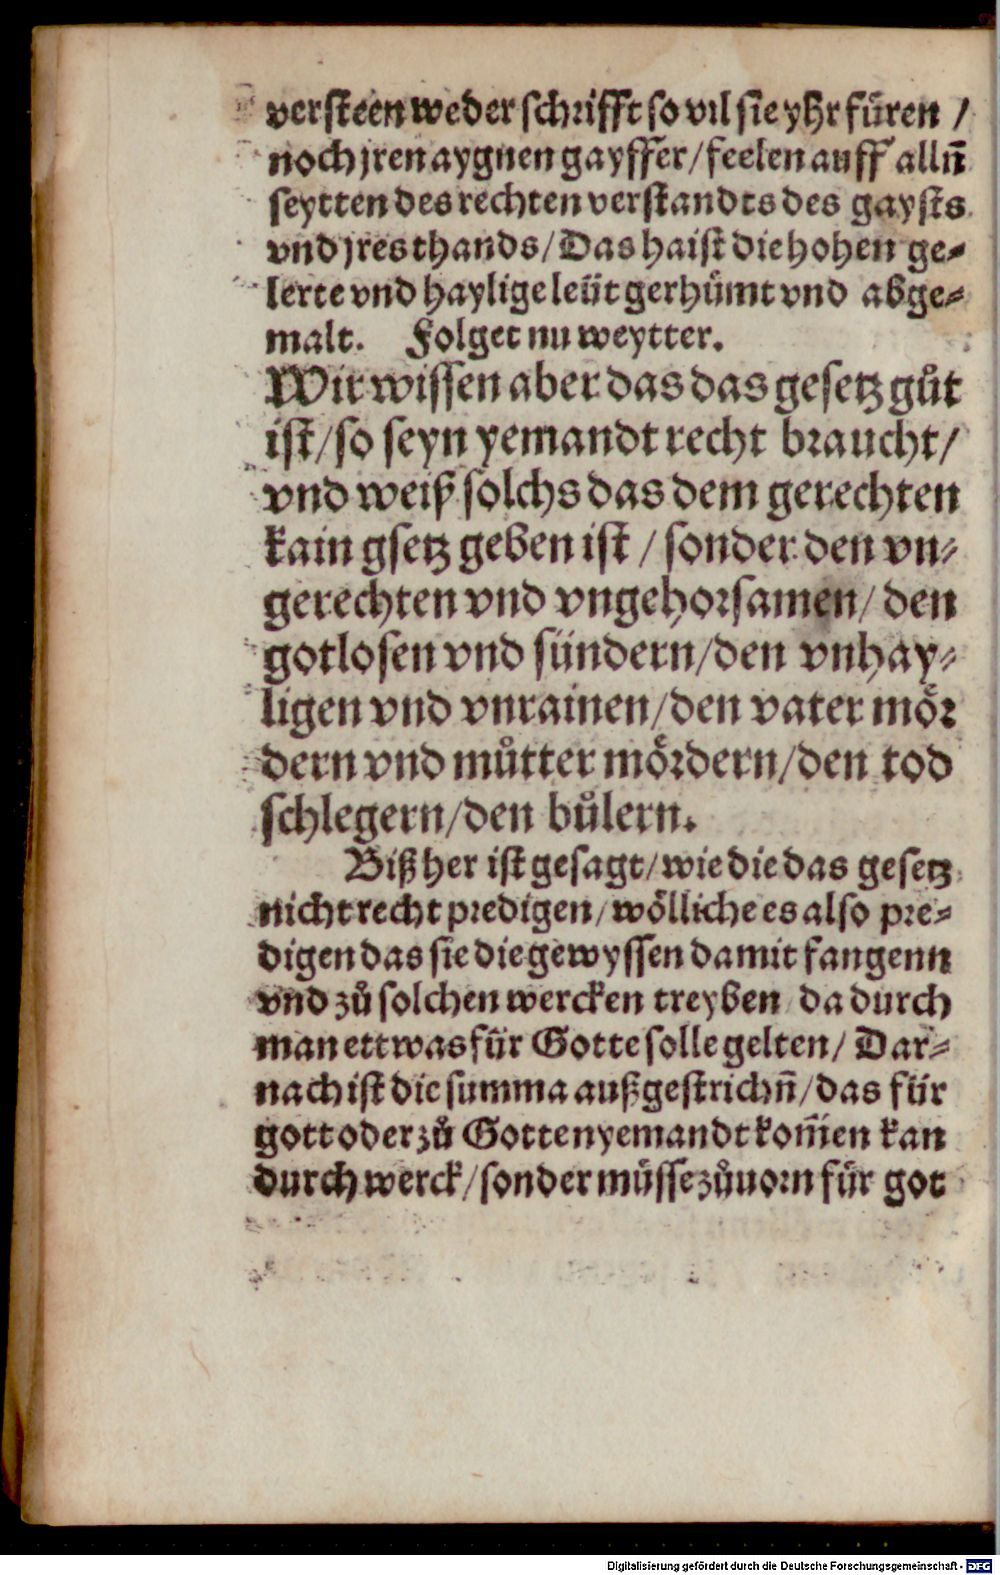 versteen weder schrifft so vil sie yhr füren /
noch jren aygnen gayffer / feelen auff alln̄
seytten des rechten verstandts des gaysts
vnd jres thands / Das haist die hohen ge⸗
lerte vnd haylige leüt gerhůmt vnd abge⸗
malt. Folget nu weytter.
Wir wissen aber das das gesetz gůt
ist / so seyn yemandt recht braucht /
vnd weiß solchs das dem gerechten
kain gsetz geben ist / sonder den vn⸗
gerechten vnd vngehorsamen / den
gotlosen vnd sündern / den vnhay⸗
ligen vnd vnrainen / den vater mör
dern vnd můtter mördern / den tod
schlegern / den bůlern.
Biß her ist gesagt / wie die das gesetz
nicht recht predigen / wölliche es also pre⸗
digen das sie die gewyssen damit fangenn
vnd zů solchen wercken treyben da durch
man ettwas für Gotte solle gelten / Dar⸗
nach ist die summa außgestrichn̄ / das für
gott oder zů Gotten yemandt kom̄en kan
durch werck / sonder müsse zůuorn für got
Digitalisierung gefördert durch die Deutsche Forschungsgemeinschaft - DFG